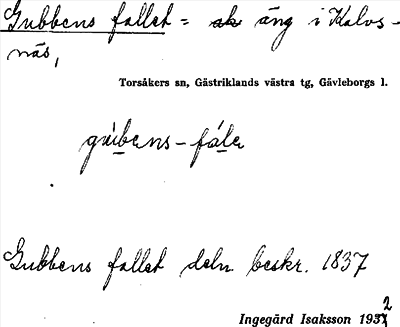 Gubbens fallet = äng i Kalvs-
näs,
Torsåkers sn, Gästriklands västra tg, Gävleborgs l.
gúbens-fále
Gubbens fallet deln beskr. 1837
Ingegärd Isaksson 1932